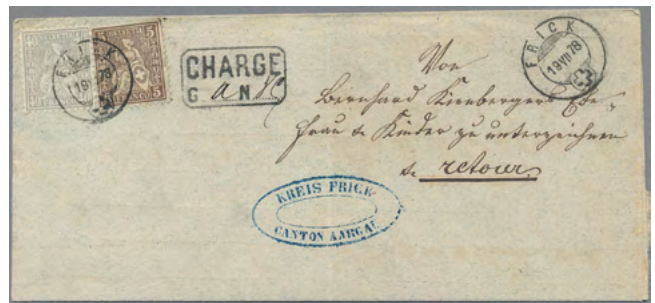 5 5
FRICK
19 VII 78
5 5
CHARGE
G N
FRICK
19 VII 78
Von
Bernhard Kirnberger Ehe-
frau & Kinder zu unterzeichnen
& retour
KREIS FRICK
CANTON AARGAU